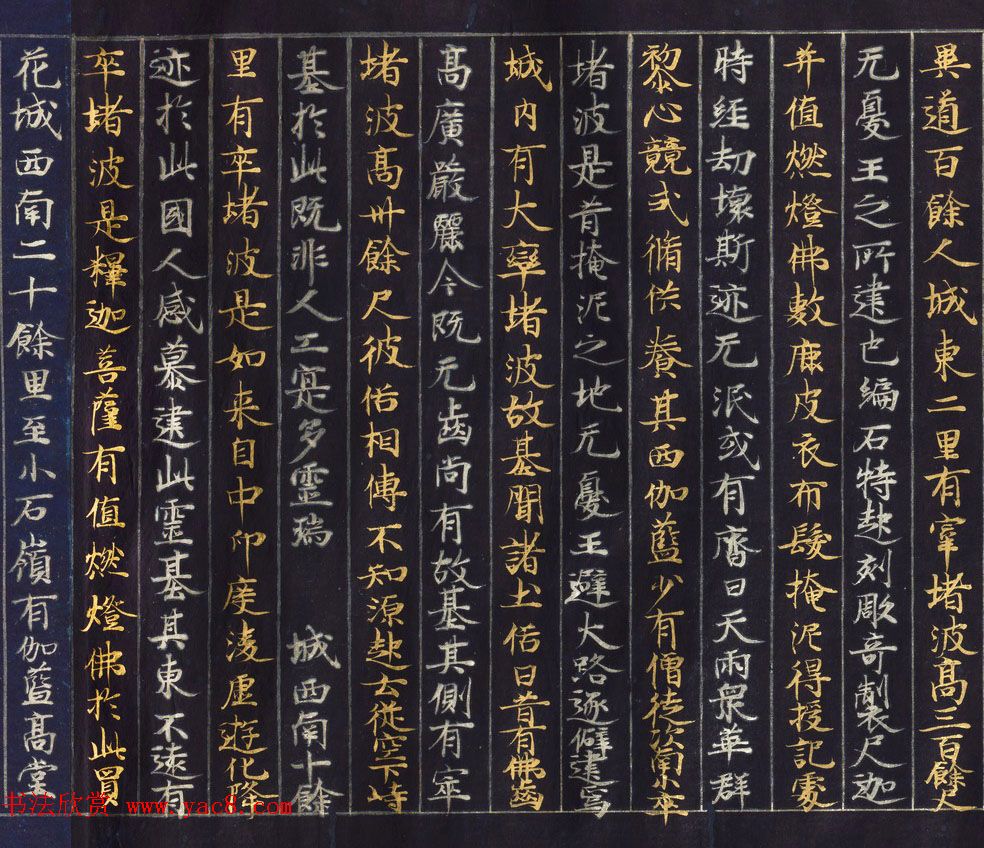 異道百餘人城東二里有窣堵波高三百餘尺
无憂王之所建也編石特起刻彫奇製釋迦
菩薩值燃燈佛敷鹿皮衣布髮掩泥得授記處
時經劫壞斯迹无泯或有齋日天雨衆華群
黎心競式脩供養其西伽藍少有僧徒次南小窣
堵波是昔掩泥之地无憂王避大路遂僻建焉
城内有大窣堵波故基聞諸土俗曰昔有佛齒
高廣嚴麗今既无齒尚有故基其側有窣
堵波高卅餘尺彼俗相傳不知源起云從空下峙
基於此既非人工寔多靈瑞 城西南十餘
里有窣堵波是如来自中印度淩虛遊化降
迹於此國人感慕建此靈基其東不遠有
窣堵波是釋迦菩薩有值燃燈佛於此買
花城西南二十餘里至小石嶺有伽藍高堂
书法欣赏 www.yac8.com